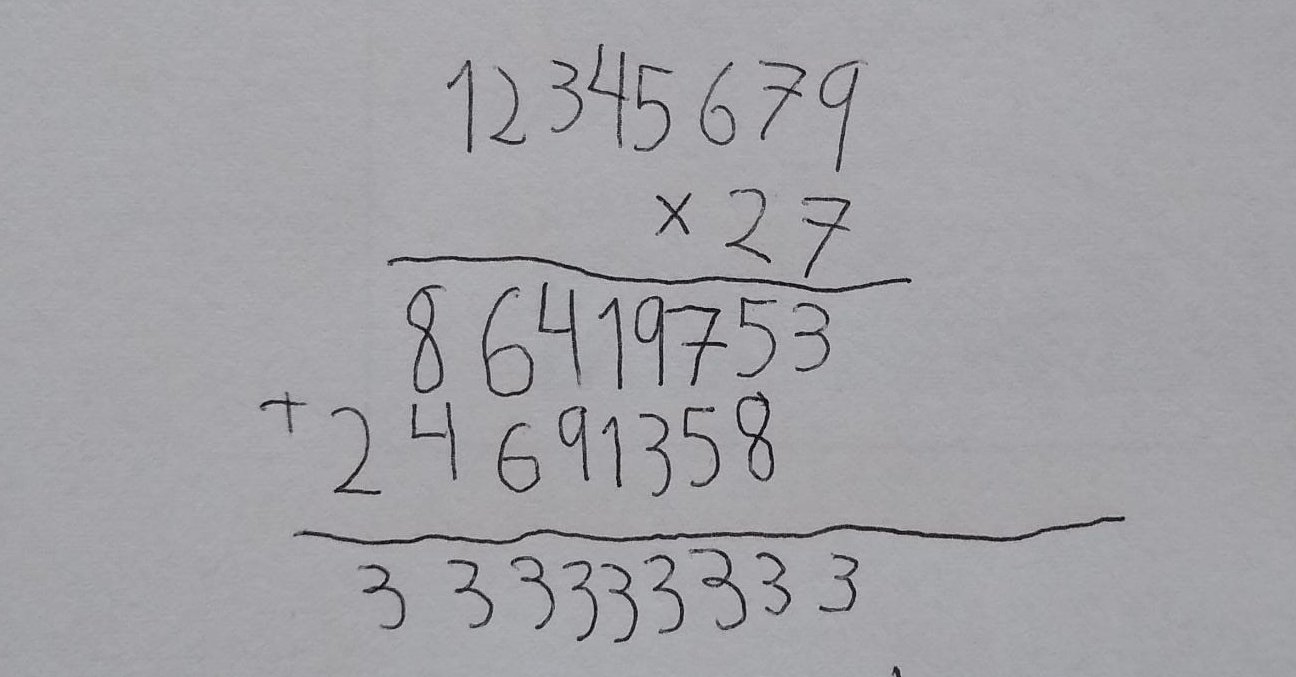 12345679
× 27
86419753
+ 24691358
333333333